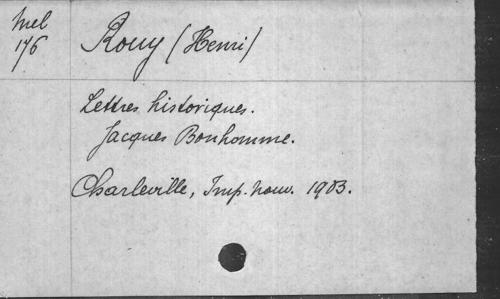 Mel
176
Rouy (Henri)
Lettres historiques.
Jacques Bonhomme.
Charleville, Imp. nouv. 1903.